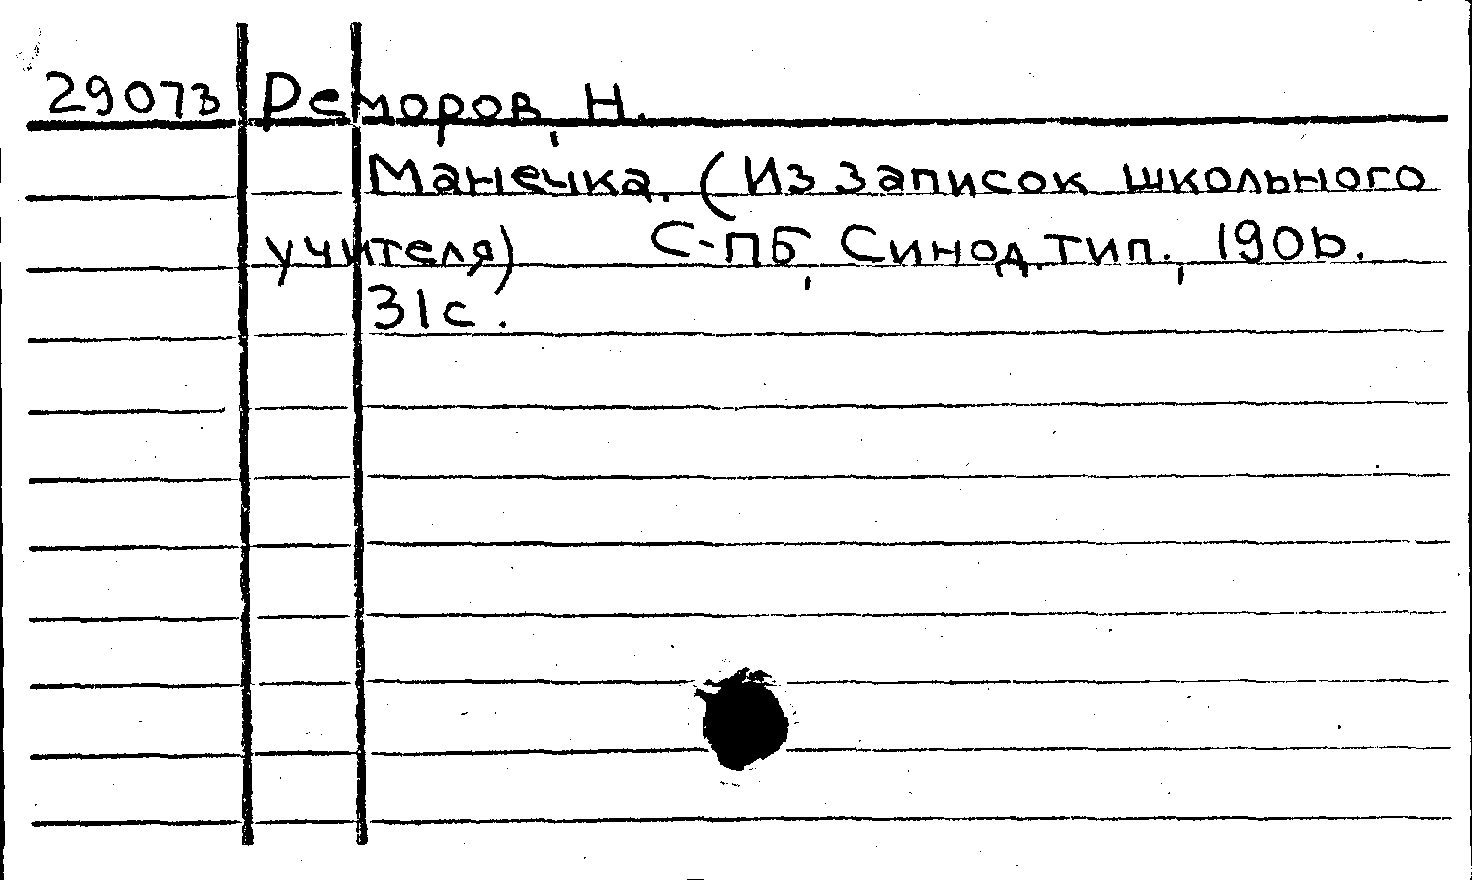 29073 Реморов, Н.
Манечка. (Из записок школьного
учителя) С-ПБ, Синод. тип., 1906.
31 с.